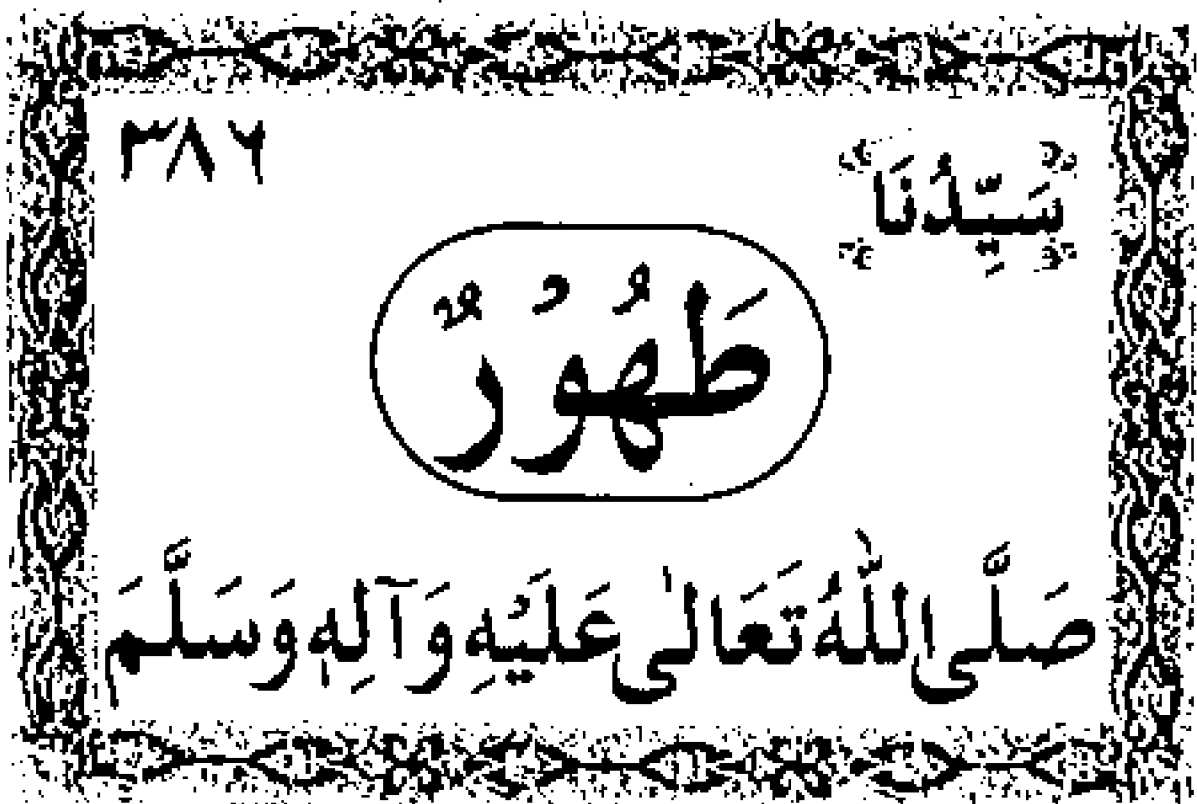 ۳۸۶
سَيِّدُنَا
طَهُوْرٌ
صَلَّى اللّٰهُ تَعَالٰى عَلَيْهِ وَآلِهٖ وَسَلَّمَ